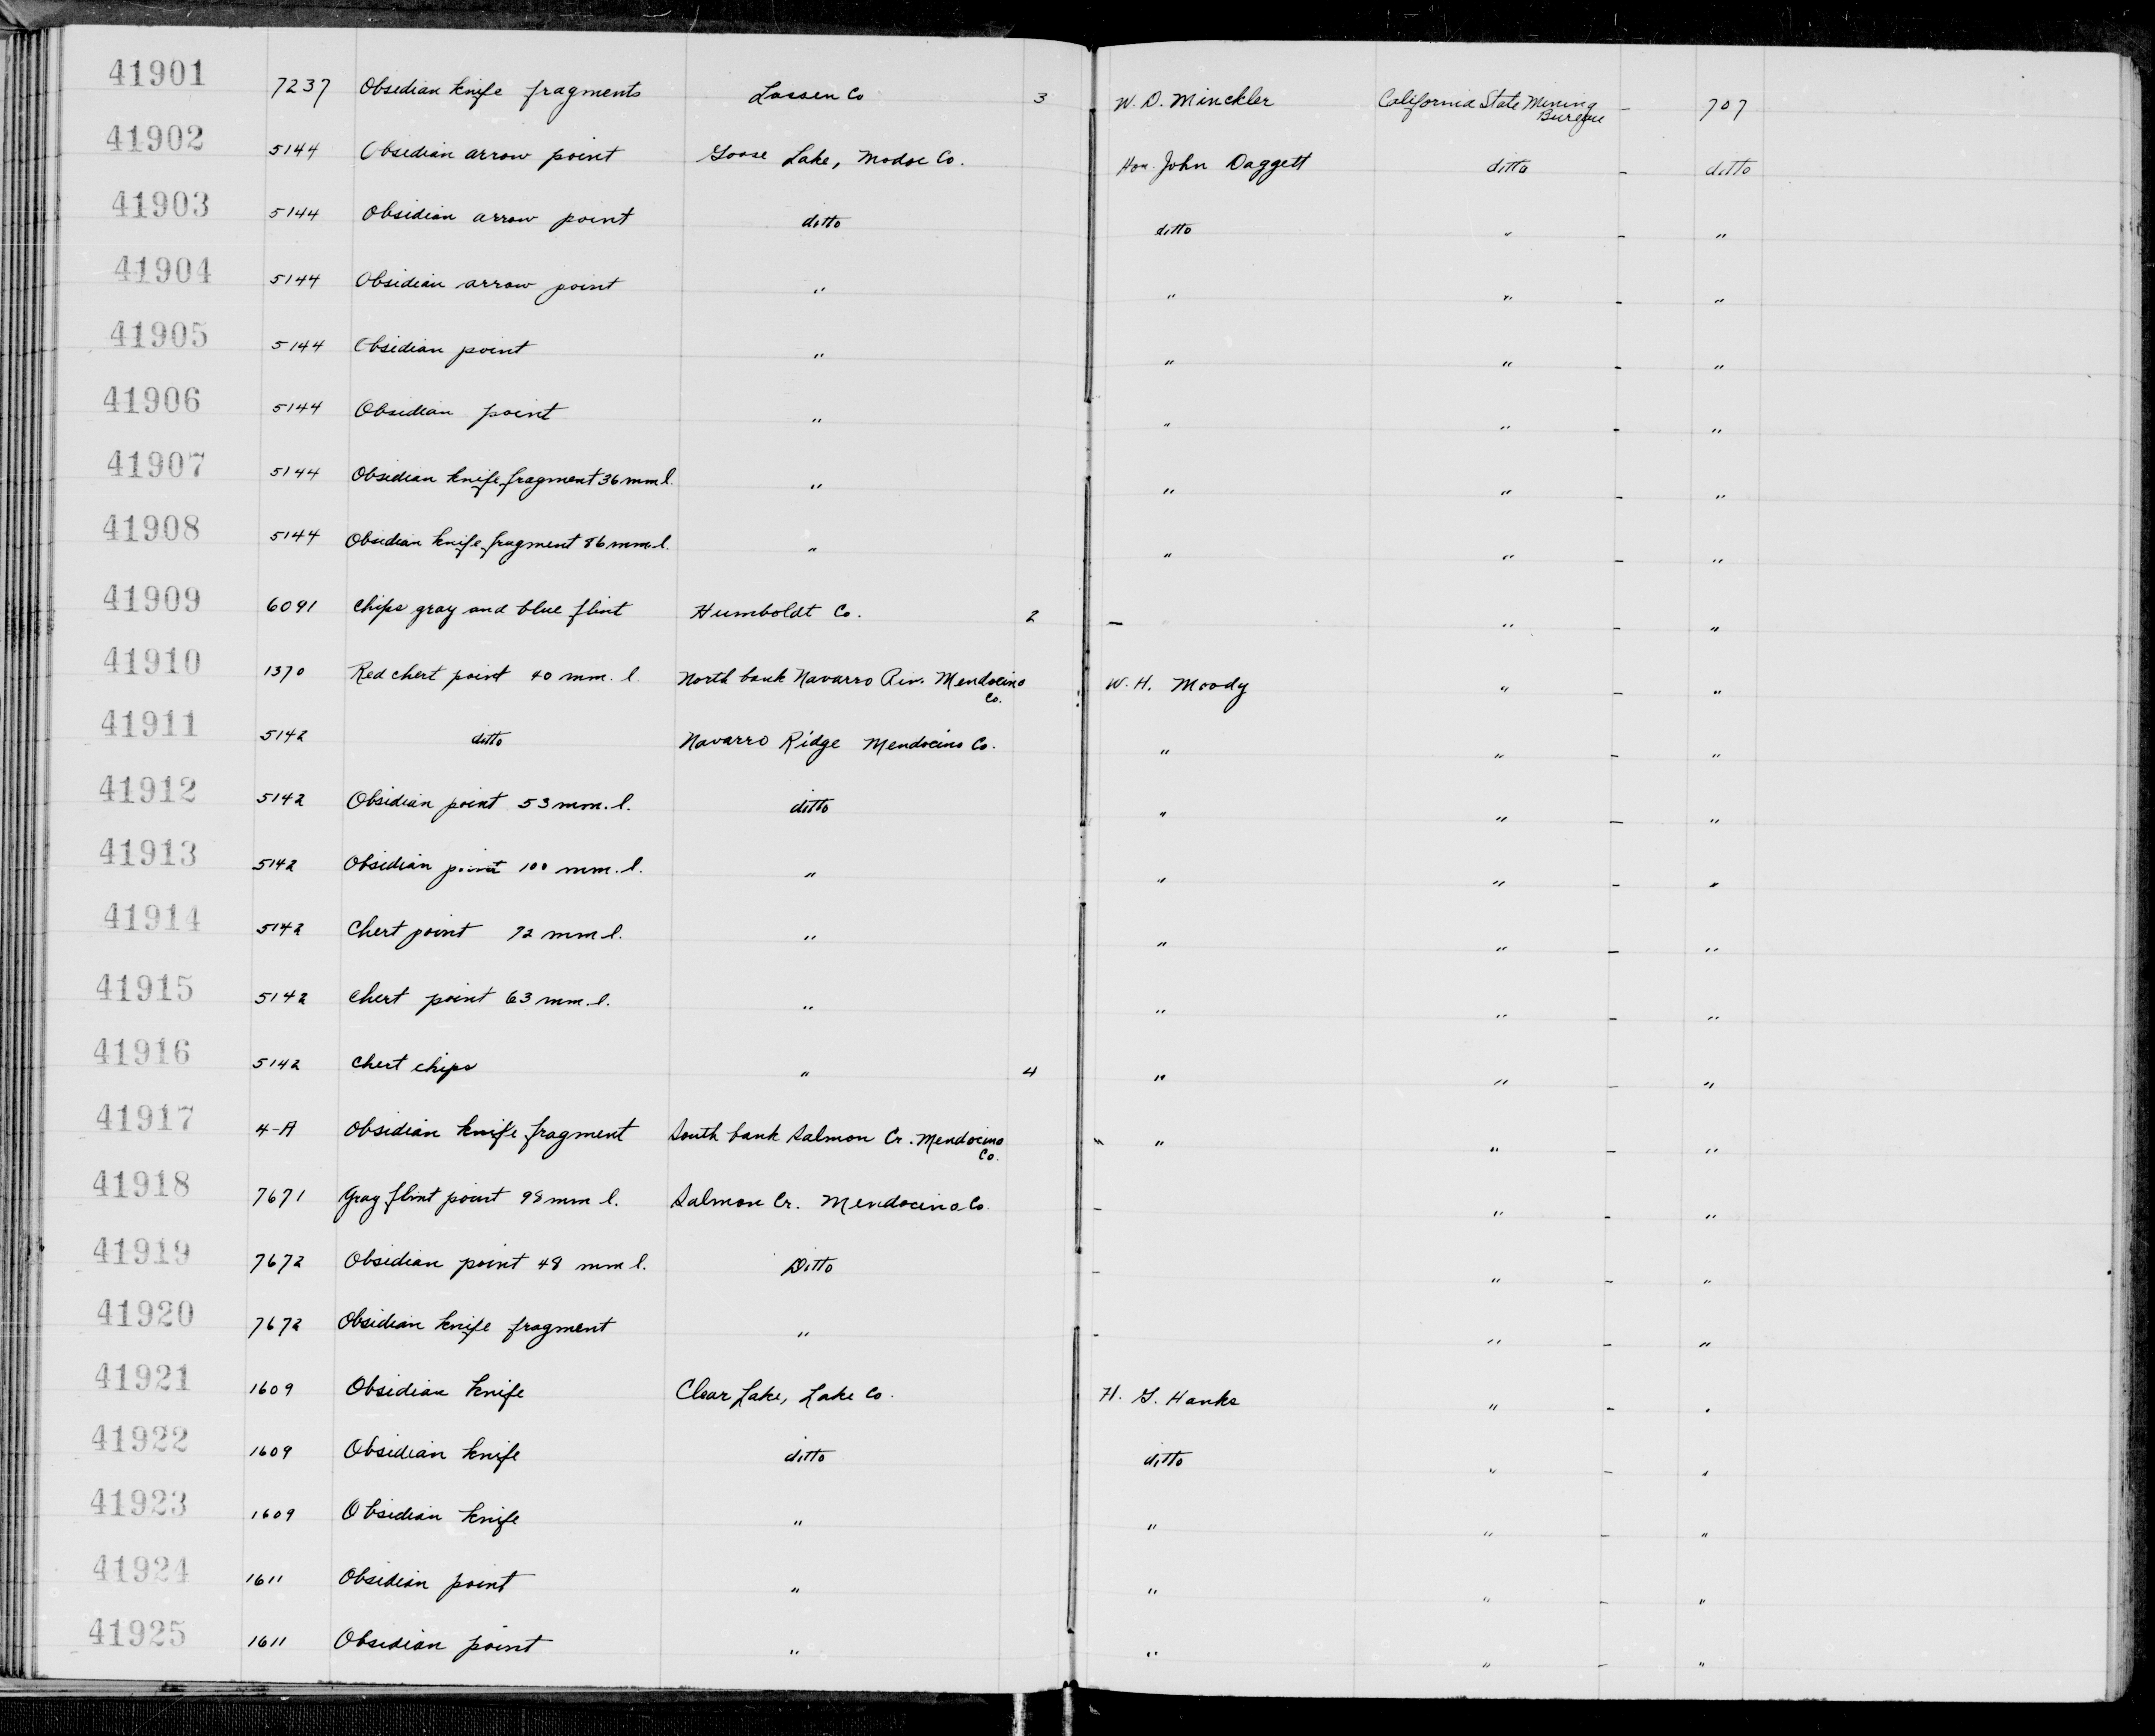 41901 7237 Obsidian knife fragments Lassen Co 3 W. D. Minckler California State Mining Bureau — 707
41902 5144 Obsidian arrow point Goose Lake, Modoc Co. Hon. John Daggett ditto — ditto
41903 5144 Obsidian arrow point ditto ditto " — "
41904 5144 Obsidian arrow point " " " — "
41905 5144 Obsidian point " " " — "
41906 5144 Obsidian point " " " — "
41907 5144 Obsidian knife fragment 36 mm l. " " " — "
41908 5144 Obsidian knife fragment 86 mm l. " " " — "
41909 6091 Chips gray and blue flint Humboldt Co. 2 — " — "
41910 1370 Red chert point 40 mm. l. North bank Navarro Riv. Mendocino Co. W. H. Moody " — "
41911 5142 ditto Navarro Ridge Mendocino Co. " " — "
41912 5142 Obsidian point 53 mm. l. ditto " " — "
41913 5142 Obsidian point 100 mm. l. " " " — "
41914 5142 Chert point 72 mm l. " " " — "
41915 5142 Chert point 63 mm. l. " " " — "
41916 5142 Chert chips " 4 " " — "
41917 4-A Obsidian knife fragment South bank Salmon Cr. Mendocino Co. " " — "
41918 7671 Gray flint point 98 mm l. Salmon Cr. Mendocino Co. — " — "
41919 7672 Obsidian point 48 mm l. Ditto — " — "
41920 7672 Obsidian knife fragment " — " — "
41921 1609 Obsidian knife Clear Lake, Lake Co. H. G. Hanks " — "
41922 1609 Obsidian knife ditto ditto " — "
41923 1609 Obsidian knife " " " — "
41924 1611 Obsidian point " " " — "
41925 1611 Obsidian point " " " — "